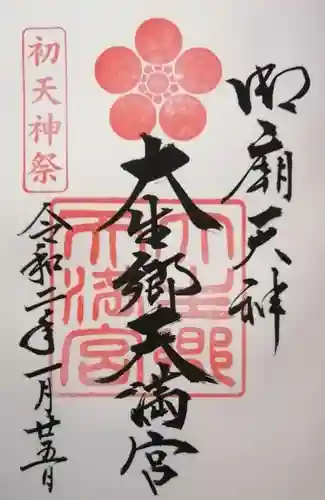 御廟天神
大生郷天満宮
令和二年一月廿五日
初天神祭
大生郷
天満宮